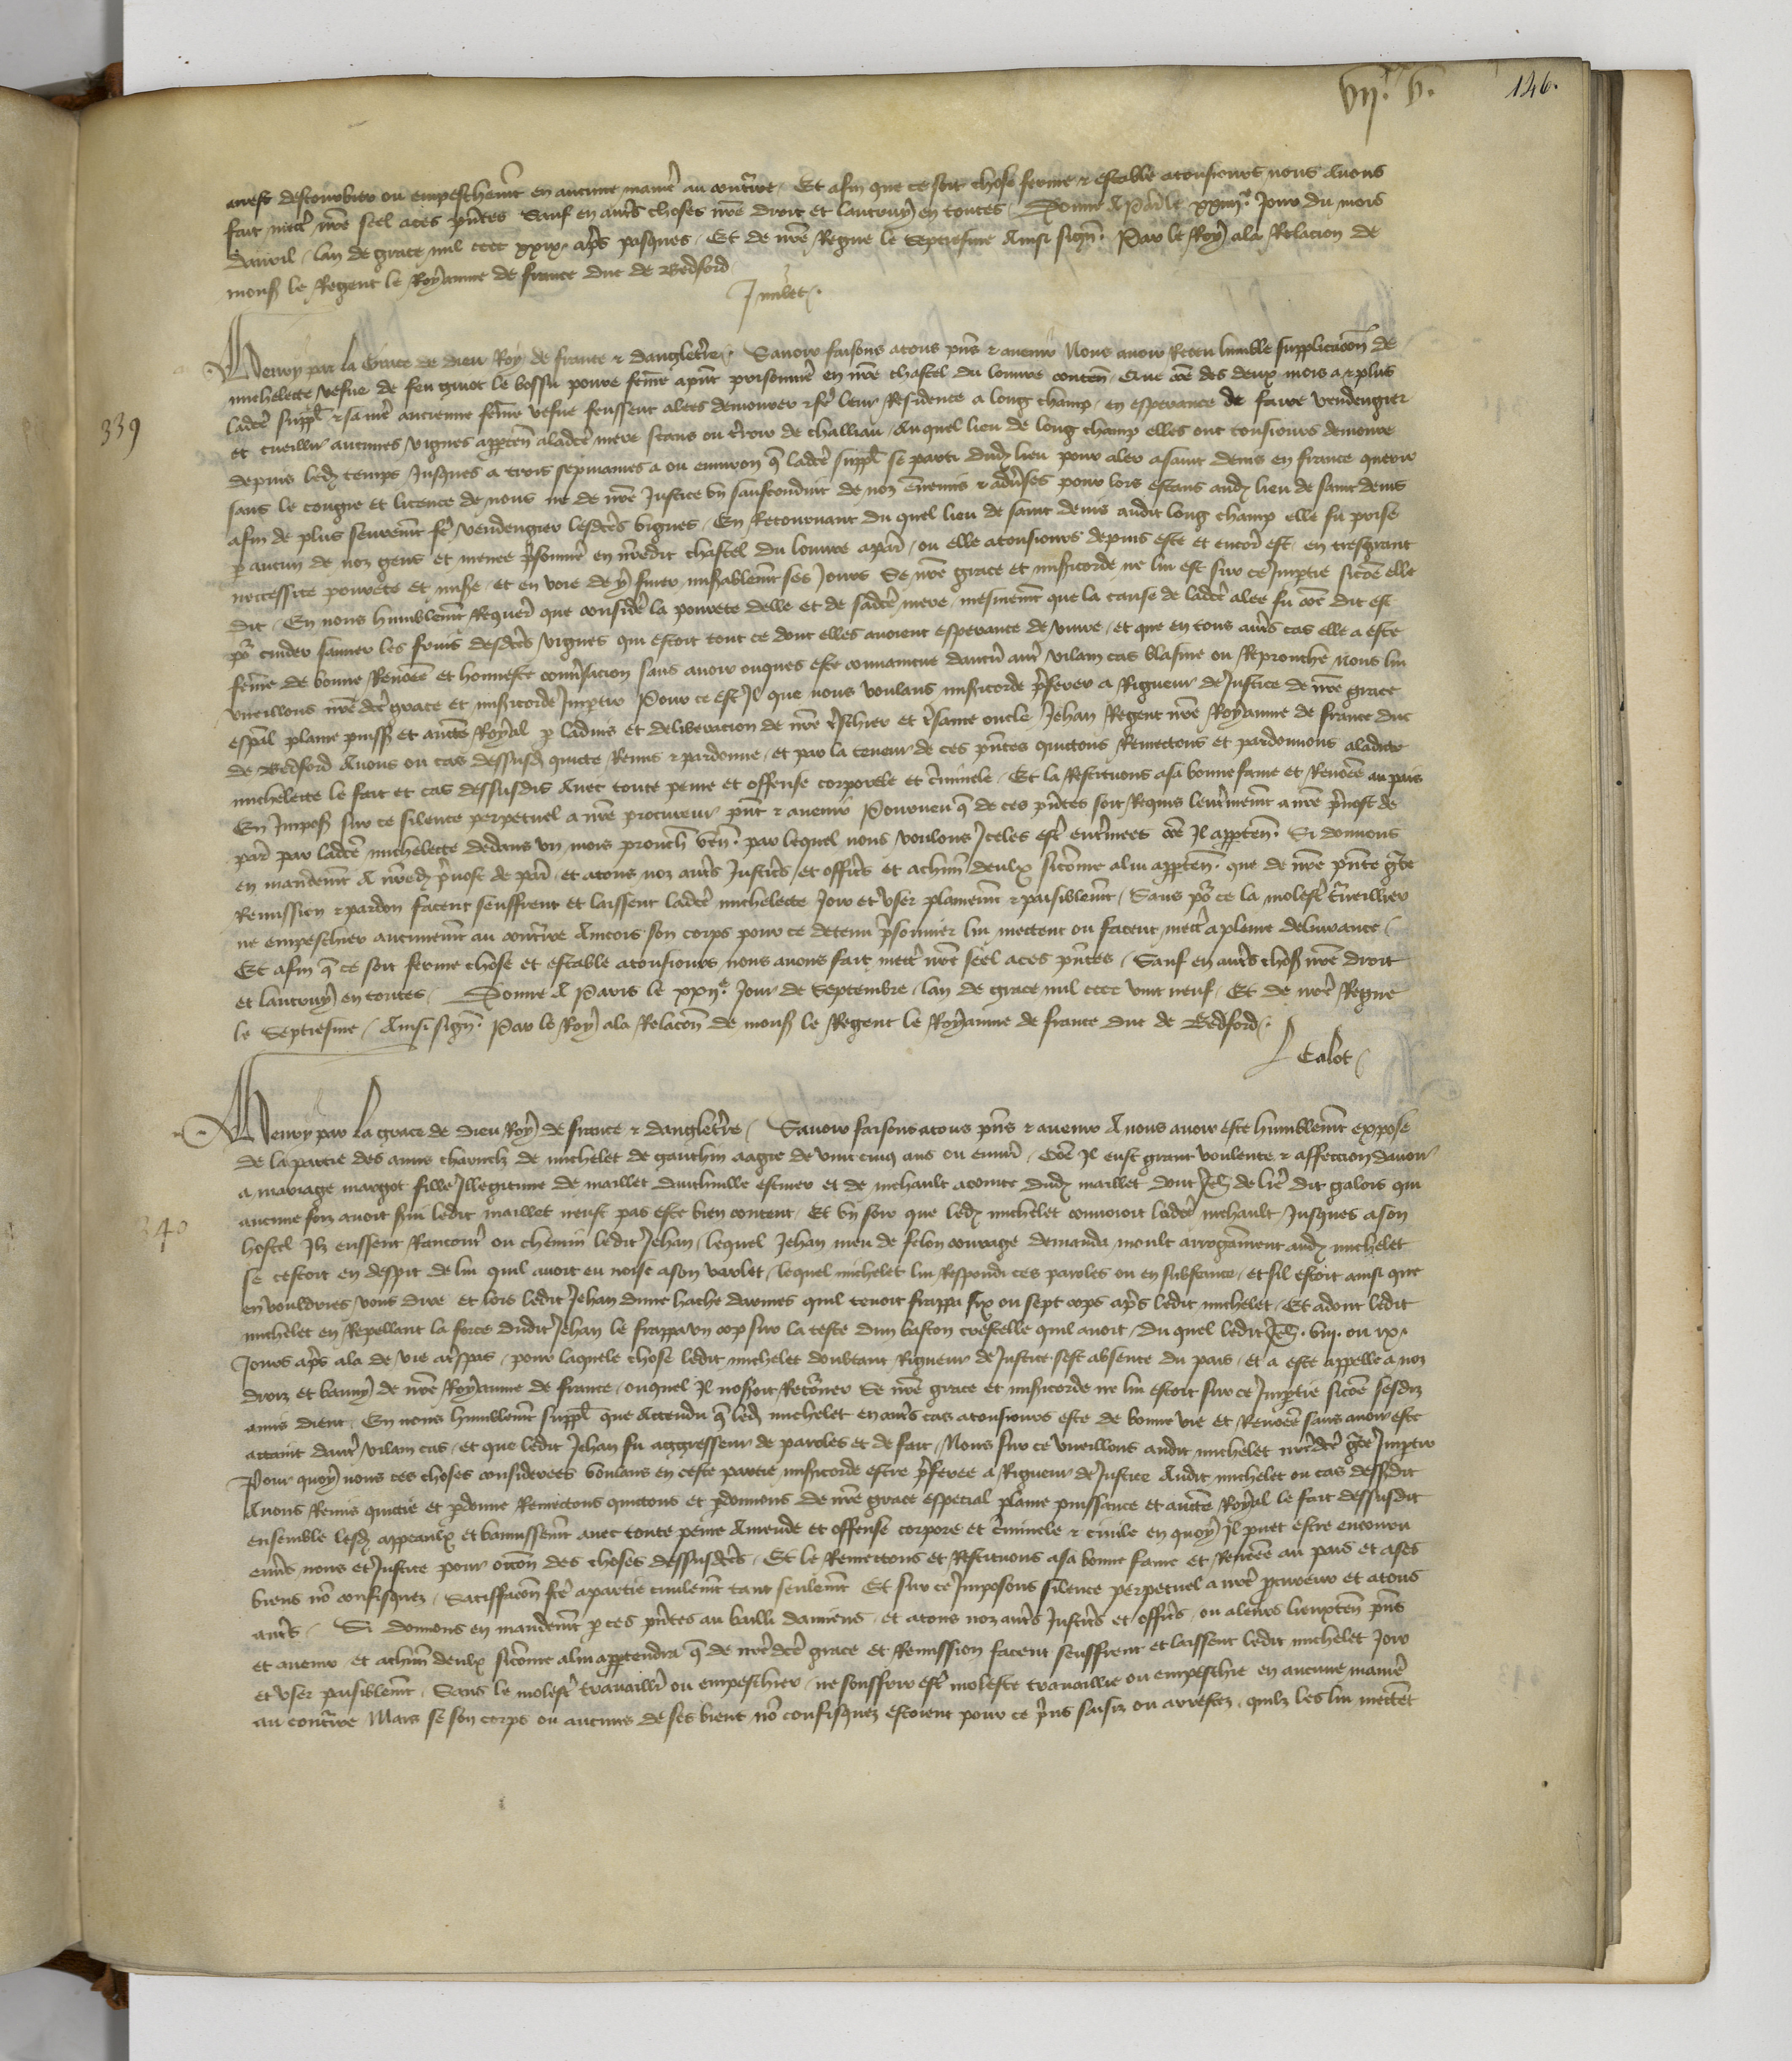 vij. v.
146.
arrest destourbier ou empeschemt en aucune manie au contre. Et afin que ce soit chose ferme & estable atousiours nous Auons
fait mettre nre seel a ces pntes Sauf en autres choses nre droit et lautruy en toutes. Donne A Paris le xxiiije Jour du mois
dauril. lan de grace mil cccc xxix. apres pasques. Et de nre Regne le Septiesme Ainsi signe. Par le Roy ala Relacion de
mons le Regent le Royaume de france duc de Bedford
339
Henry par la Grace de dieu Roy de france & dangleterre. Sauoir faisons atous pns & auenir Nous auoir Receu humble supplicacion de
michelecte vefue de feu guiot le bossu poure feme apnt prisonniere en nre chastel du louure conten. Que come des deux mois a & plus
ladce suppl & sa mere ancienne feme vefue feussent alees demourer & fe leur Residence a long champ. en esperance de faire vendengier
et cueillir aucunes vignes apparten a ladce mere seans ou terrouer de challiau. Auquel lieu de long champ elles ont tousiours demoure
depuis ledt temps Jusques a trois sepmaines a ou enuiron q ladce suppl se parti dudt lieu pour aler a saint denis en france querir
sans le congie et licence de nous ne de nre Justice vn saufconduit de noz ennemis & aduses pour lors estans audt lieu de saint denis
afin de plus seurement fe vendengier lesdces vignes. En Retournant du quel lieu de saint denis audit long champ elle fu prise
p aucun de noz gens et menee prisonniere en nredit chastel du louure a paris. ou elle atousiours depuis este et encores est. en tresgrant
necessite pourete et misere. et en voie de y finer miserablemt ses Jours Se nre grace et misericorde ne lui est sur ce Impartie sicoe elle
dit. En nous humblemt Requert que consideré la pourete delle et de sadce mere. mesmemt que la cause de ladce alee fu coe dit est
por cuider sauuer les fruis desdces vignes qui estoit tout ce dont elles auoient esperance de viure. et que en tous autres cas elle a este
feme de bonne Renomee et honneste conuersacion sans auoir onques este conuaincue daucun autre vilain cas blasme ou Reprouche Nous lui
vueillons nre dce grace et misericorde Impartir Pour ce est Jl que nous voulans misericorde preferer a Rigueur de Justice de nre grace
espal plaine puiss et aucte Royal p laduis et deliberacion de nre treschier et tresame oncle Jehan Regent nre Royaume de france duc
de Bedford Auons ou cas dessusd quicte Remis & pardonne. et par la teneur de ces pntes quictons Remectons et pardonnons aladicte
michelecte le fait et cas dessusdis Auec toute peine et offense corporele et criminele. Et la Restituons a sa bonne fame et Renomee au pais
En Imposant sur ce silence perpetuel a nre procureur pnt & auenir Pourueu q de ces pntes soit Requis lenterinemt a nre preuost de
paris par ladce michelecte dedans vn mois prouch ven. par lequel nous voulons Jceles estre enterinees coe Jl apparten. Si donnons
en mandemt A nredt preuost de paris. et atous noz autres Justices et officiers et achun deulx sicomme alui apparten. que de nre pnte grace
Remission & pardon facent seuffrent et laissent ladce michelecte Joir et vser plainemt & paisiblemt. Sans por ce la molester trauaillier
ne empeschier aucunemt au contraire Aincois son corps pour ce detenu prisonnier lui mectent ou facent mectre a pleine deliurance.
Et afin q ce soit ferme chose et estable atousiours nous auons fait mectre nre seel aces pntes. Sauf en autres choses nre droit
et lautruy en toutes. Donne A Paris le xxije Jour de Septembre. lan de grace mil cccc vint neuf. Et de nre Regne
le Septiesme. Ainsi signe. Par le Roy ala Relacion de mons le Regent le Royaume de france duc de Bedford.
Calot
340
Henry par la grace de dieu Roy de france & dangleterre. Sauoir faisons atous pns & auenir A nous auoir este humblemt expose
de la partie des amis charnelz de michelet de gauchin aagie de vint cinq ans ou enuiron. Coe Jl eust grant voulente & affeccion dauoir
a mariage margot fille Illegitime de maillet escuier et de michault acointe dudt maillet dont Jeh de licques dit galois qui
aucune foiz auoit serui ledit maillet neust pas este bien content. Et vn soir que ledt michelet conuoioit ladce michault. Jusques a son
hostel Jlz eussent Rancontre ou chemin ledit Jehan. lequel Jehan meu de felon courage demanda moult arrogamment audt michelet
se cestoit en despit de lui quil auoit eu noise a son varlet. lequel michelet lui Respondi ces paroles ou en substance. et sil estoit ainsi que
en vouldries vous dire et lors ledit Jehan dune hache darmes quil tenoit frappa six ou sept cops apres ledit michelet. Et adont ledit
michelet en Repellant la force dudit Jehan le frappa vn cop sur la teste dun baston creselle quil auoit. du quel ledit Jeh. viij. ou ix.
Jours apres ala de vie a trespas. pour laquele chose ledit michelet doubtant Rigueur de Justice sest absente du pais. et a este appelle a noz
droiz et banny de nre Royaume de france. ouquel Jl noseroit Retourner Se nre grace et misericorde ne lui estoit sur ce Impartie sicoe sesdiz
amis dient. En nous humblemt suppl que Actendu q ledt michelet en autres cas atousiours este de bonne vie et Renomee sans auoir este
actaint dautre vilain cas. et que ledit Jehan fu aggresseur de paroles et de fait. Nous sur ce vueillons audit michelet nredce grace Impartir
Pour quoy nous ces choses considerees Voulans en ceste partie misericorde estre preferee a Rigueur de Justice Audit michelet ou cas dessusdit
Auons Remis quicte et pdonne Remectons quictons et pdonnons de nre grace especial plaine puissance et aucte Royal le fait dessusdit
ensemble lesdt appeaulx et bannissemt auec toute peine Amende et offense corpore et criminele & ciuile en quoy Jl puet estre encouru
enuers nous et Justice pour occasion des choses dessusdces. Et le Remectons et Restituons a sa bonne fame et Renomee au pais et a ses
biens no confisquez. Satisfaccion fce a partie ciuilemt tant seulemt Et sur ce Imposons silence perpetuel a nre procureur et atous
autres. Si donnons en mandemt p ces pntes au bailli damiens. et atous noz autres Justices et officiers. ou aleurs lieuxten pns
et auenir. et achun deulx sicomme alui appartendra q de nredce grace et Remission facent seuffrent et laissent ledit michelet Joir
et vser paisiblemt. Sans le molester trauaillier ou empeschier. ne souffrir estre moleste trauaillie ou empeschie en aucune maniere
au contraire Mais se son corps ou aucuns de ses biens no confisquez estoient pour ce prins saisiz ou arrestez. quilz les lui mectent